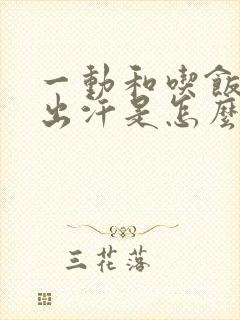 一動和喫飯
出汗是怎麼
三花落